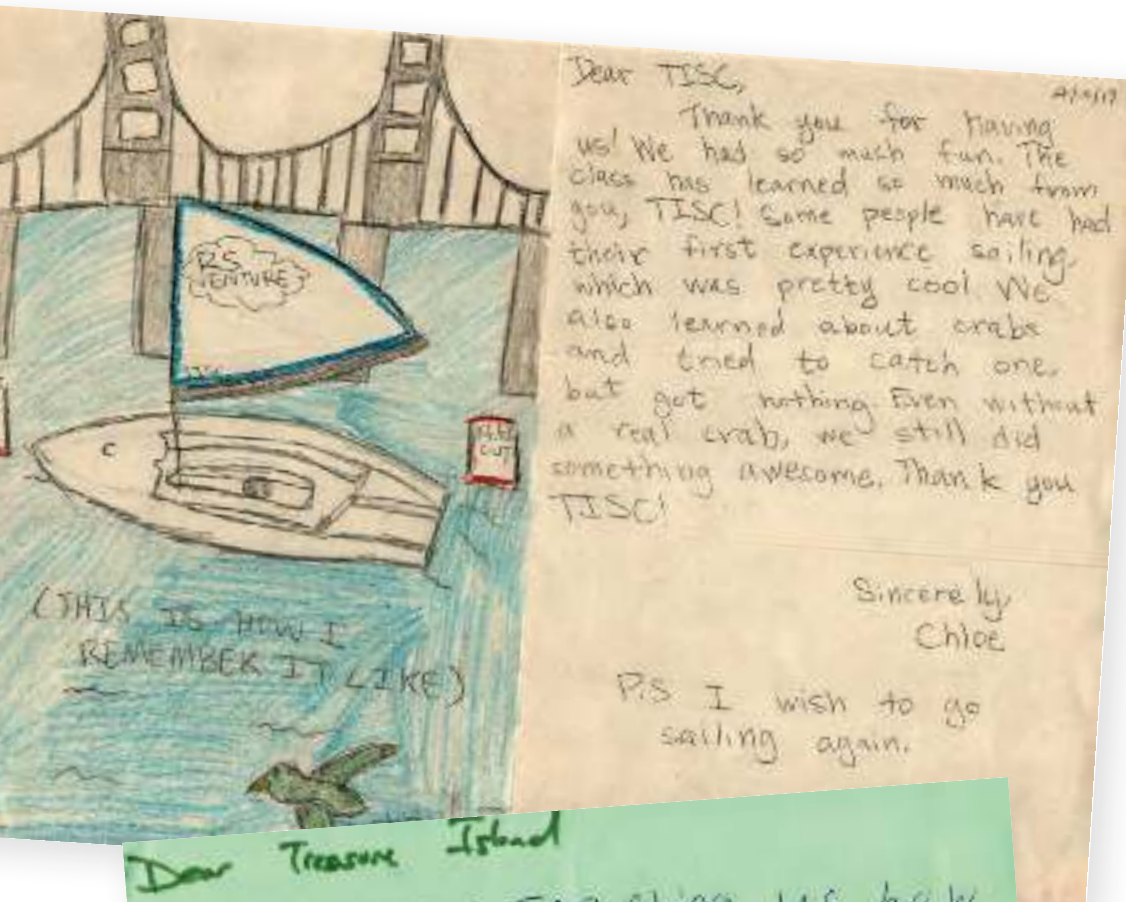 RS
VENTURE
C
OUT
(THIS IS HOW I
REMEMBER IT LIKE)
Dear TISC,
Thank you for having
us! We had so much fun. The
class has learned so much from
you, TISC! Some people have had
their first experience sailing,
which was pretty cool. We
also learned about crabs
and tried to catch one,
but got nothing. Even without
a real crab, we still did
something awesome. Thank you
TISC!
Sincerely,
Chloe
P.S I wish to go
sailing again.
Dear Treasure Island